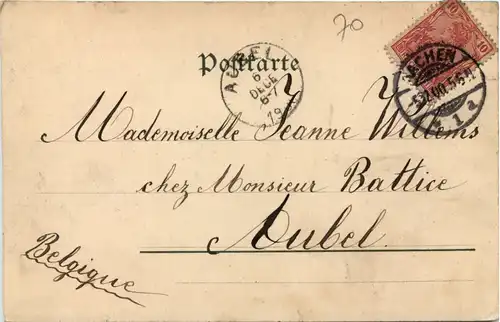 70
10 10
Postkarte
AUBEL
6
DECE
6-7
19
AACHEN
1 a
Mademoiselle Jeanne Willems
chez Monsieur Battice
Aubel.
Belgique